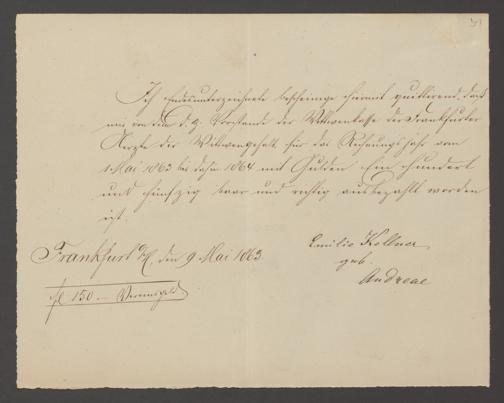 Ich Endesunterzeichnete bescheinige hiermit quittierend, daß
mir von dem d. z. Vorstande der Wittwenkasse der Frankfurter
Aerzte der Wittwengehalt für das Rechnungsjahr vom
1 Mai 1863 bis dahin 1864 mit Gulden Ein hundert
und fünfzig baar und richtig ausbezahlt worden
ist.
Frankfurt a/M, den 9 Mai 1863
Emilie Kellner
geb.
Andreae
fl 150.— Vereinsgeld